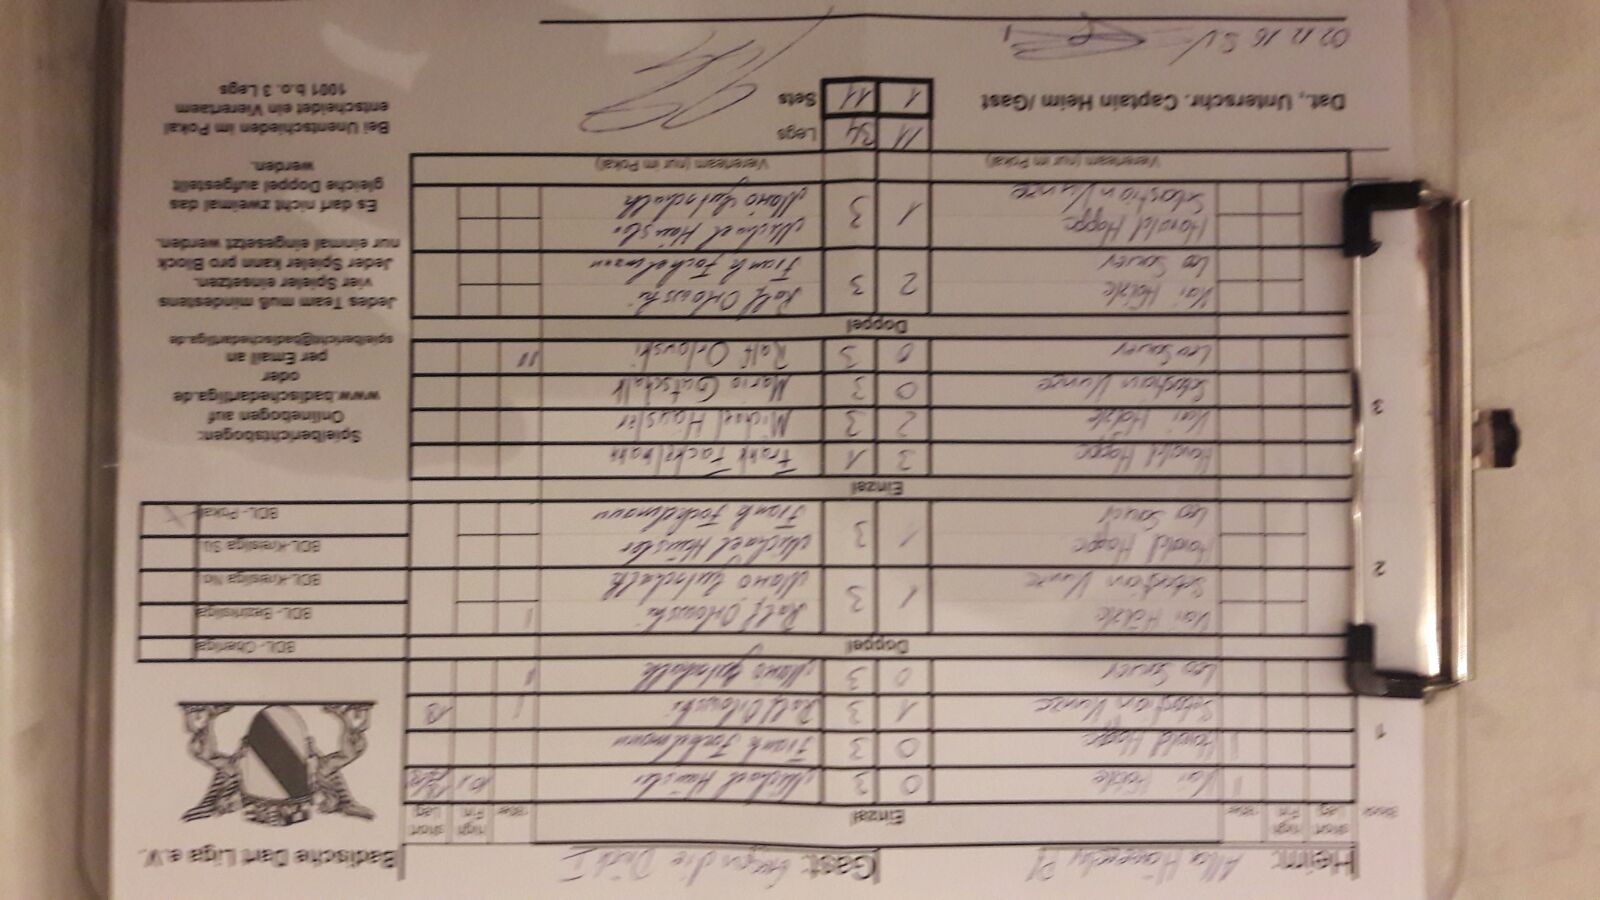 Heim: Alla Hopp
Gast: Gegen die Draht I
Badische Dart Liga e.V.
Block short Leg High Fin 180er Einzel 180er High Fin short Leg
1
Kai Hölzle 0 3 Michael Häusler
Harald Hoppe 0 3 Frank Fackelmann
Sebastian Kunze 1 3 Ralf Orlowski 18
Leo Sauer 0 3 Mario Gutschalk
Doppel
2
Kai Hölzle Ralf Orlowski
Sebastian Kunze 1 3 Mario Gutschalk
Harald Hoppe Michael Häusler
Leo Sauer 1 3 Frank Fackelmann
BDL- Oberliga
BDL- Bezirksliga
BDL-Kreisliga No
BDL-Kreisliga Sü
BDL- Pokal
Einzel
3
Harald Hoppe 3 1 Frank Fackelmann
Kai Hölzle 2 3 Michael Häusler
Sebastian Kunze 0 3 Mario Gutschalk
Leo Sauer 0 3 Ralf Orlowski
Doppel
4
Kai Hölzle Ralf Orlowski
Leo Sauer 2 3 Frank Fackelmann
Harald Hoppe Michael Häusler
Sebastian Kunze 1 3 Mario Gutschalk
Viererteam (nur im Pokal) Viererteam (nur im Pokal)
11 34 Legs
Dat., Unterschr. Captain Heim /Gast 1 11 Sets
02.12.16
Spielberichtsbogen:
Onlinebogen auf
www.badischedartliga.de
oder
per Email an
spielbericht@badischedartliga.de
Jedes Team muß mindestens
vier Spieler einsetzen.
Jeder Spieler kann pro Block
nur einmal eingesetzt werden.
Es darf nicht zweimal das
gleiche Doppel aufgestellt
werden.
Bei Unentschieden im Pokal
entscheidet ein Viererteam
1001 b.o. 3 Legs